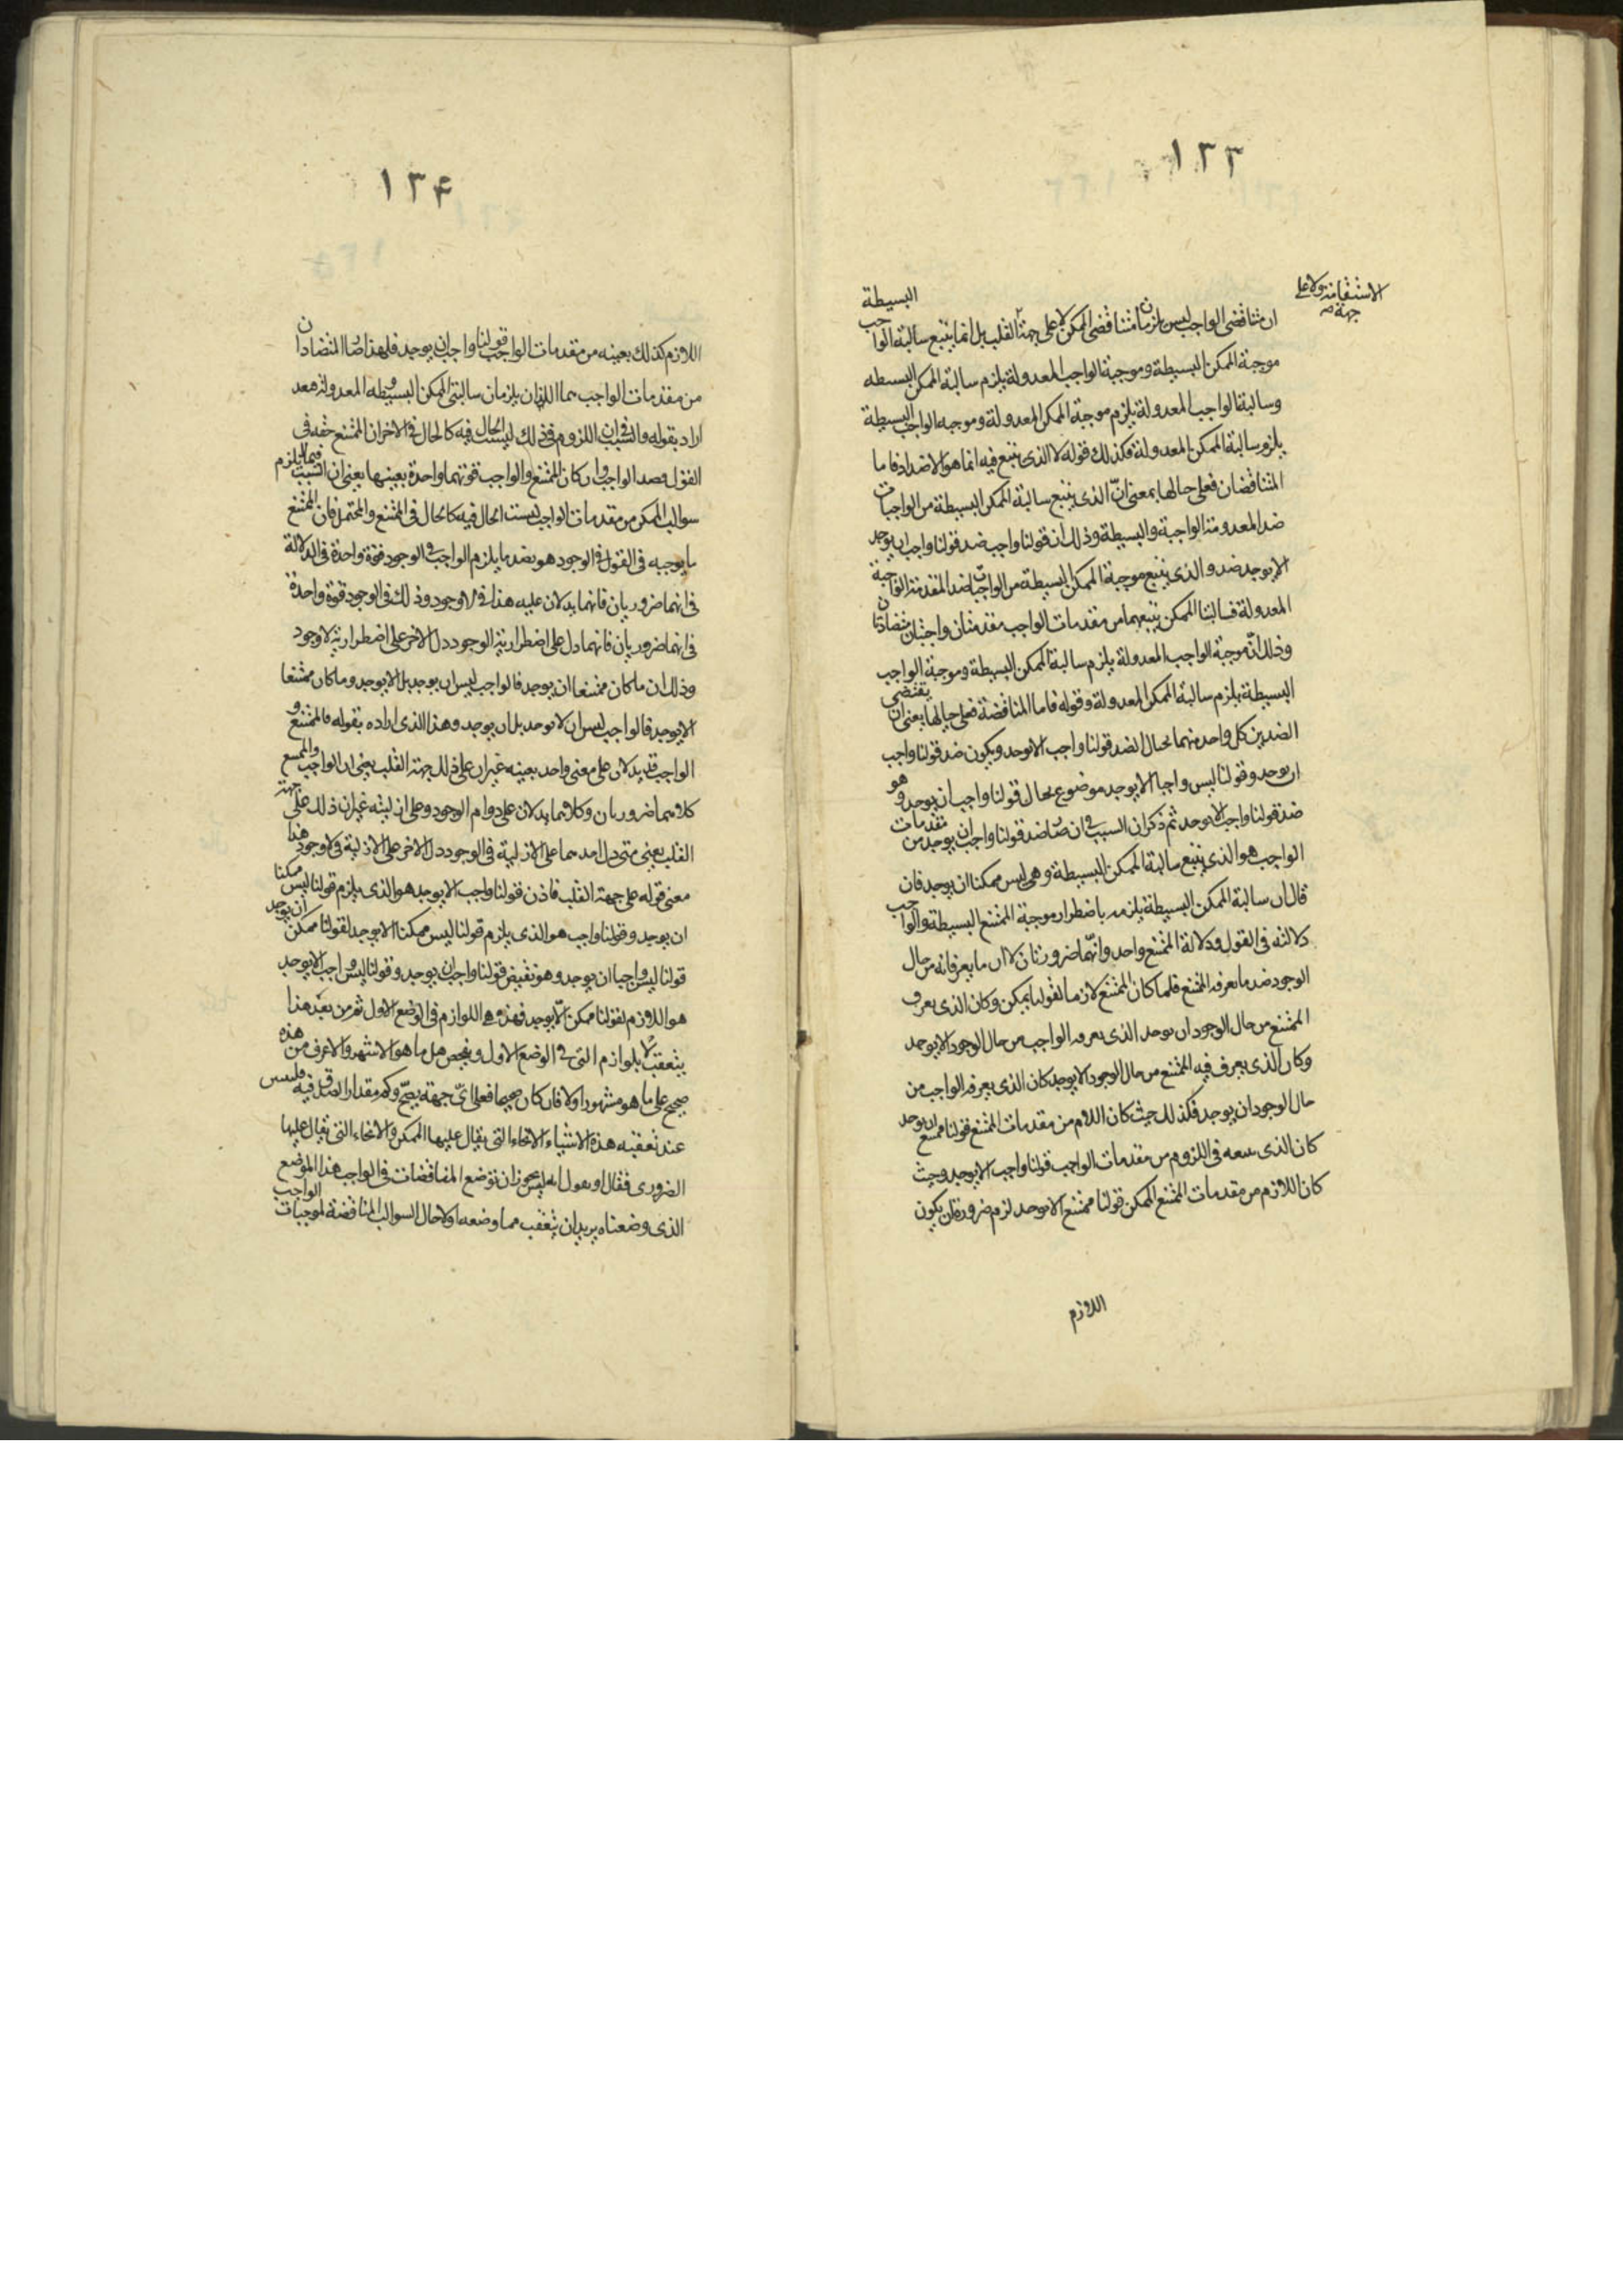 ١٣٣
الاستقامة ولا على
جهة
ان متناقضى الواجب ليس يلزمان متناقضى الممكن لا على جهة القلب بل انما يتبع سالبة الواجب البسيطة
موجبة الممكن البسيطة وموجبة الواجب المعدولة يلزم سالبة الممكن البسيطه
وسالبة الواجب المعدولة يلزم موجبة الممكن المعدولة وموجبه الواجب البسيطة
يلزم سالبة الممكن المعدولة فكذلك قوله الا الذى يتبع فيه انما هو الاضداد فاما
المتناقضان فعلى حالها بمعنى انّ الذى يتبع سالبة الممكن البسيطة من الواجبات
ضد المعدومة الواجبة والبسيطة وذلك ان قولنا واجب ضد قولنا واجب ان يوجد
الا يوجد ضد والذى يتبع موجبة الممكن البسيطة من الواجبات ضد المقدمة الواجبة
المعدولة فسالبتا الممكن يتبعهما من مقدمات الواجب مقدمتان واجبتان متضادتان
وذلك انّ موجبة الواجب المعدولة يلزم سالبة الممكن البسيطة وموجبة الواجب
البسيطة يلزم سالبة الممكن المعدولة وقوله فاما المناقضة فعلى حالها يعنى ان يقتضى
الضدين كل واحد منهما بحال الضد قولنا واجب الا يوجد ويكون ضد قولنا واجب
ان يوجد وقولنا ليس واجبا الا يوجد موضوع بحال قولنا واجب ان يوجد وهو
ضد قولنا واجب الا يوجد ثم ذكر ان السبب فى ان صار ضد قولنا واجب ان يوجد من مقدمات
الواجب هو الذى يتبع سالبة الممكن البسيطة وهى ليس ممكنا ان يوجد فان
قال ان سالبة الممكن البسيطة يلزمه باضطرار موجبة الممتنع البسيطة والواجب
دلالته فى القول ودلالة الممتنع واحد وانّهما ضرورتان لا ان ما يعرفانه من حال
الوجود ضد ما يعرفه الممتنع فلما كان الممتنع لازما لقولنا يمكن وكان الذى يعرف
الممتنع من حال الوجود ان يوجد الذى يعرفه الواجب من حال الوجود الا يوجد
وكان الذى يعرف فيه الممتنع من حال الوجود الا يوجد كان الذى يعرفه الواجب من
حال الوجود ان يوجد فكذلك حيث كان اللازم من مقدمات الممتنع قولنا ممتنع ان يوجد
كان الذى يتبعه فى اللزوم من مقدمات الواجب قولنا واجب الا يوجد وحيث
كان اللازم من مقدمات الممتنع الممكن قولنا ممتنع الا يوجد لزم ضرورة ان يكون
اللازم
١٣۴
اللازم كذلك بعينه من مقدمات الواجب قولنا واجب ان يوجد فلهذا صار المتضادان
من مقدمات الواجب هما اللذان يلزمان سالبتى الممكن البسيطه والمعدولة
اراد بقوله والسبب فى ان اللزوم فى ذلك ليست الحال فيه كالحال فى الاخر ان الممتنع حقه فى
القول ضد الواجب وان كان الممتنع والواجب قوتهما واحدة بعينها يعنى ان السبب فيما يلزم
سوالب الممكن من مقدمات الواجب ليست الحال فيه كالحال فى الممتنع والمحتمل فان الممتنع
ما يوجبه فى القول فى الوجود هو ضد ما يلزم الواجب فى الوجود قوة واحدة فى الدلالة
فى انهما ضروريان فانهما يدلان عليه هذا فى لا وجود وذلك فى الوجود قوة واحدة
فى انهما ضروريان فانهما دل على اضطرارية الوجود دل الاخر على اضطرارية لا وجود
وذلك ان ما كان ممتنعا ان يوجد فالواجب ليس ان يوجد بل الا يوجد وما كان ممتنعا
الا يوجد فالواجب ليس ان لا يوجد بل ان يوجد وهذا الذى اراده بقوله فالممتنع و
الواجب قد يدلان على معنى واحد بعينه غير ان على ذلك جهة القلب يعنى ان الواجب والممتنع
كلاهما ضروريان وكلاهما يدلان على دوام الوجود وعلى ان ليته غير ان ذلك على جهة
القلب يعنى متى دل احدهما على الازلية فى الوجود دل الاخر على الازلية فى لا وجود هذا
معنى قوله على جهة القلب فاذن قولنا واجب الا يوجد هو الذى يلزم قولنا ليس ممكنا
ان يوجد وقولنا واجب هو الذى يلزم قولنا ليس ممكنا الا يوجد لقولنا ممكن ان يوجد
قولنا ليس واجبا ان يوجد وهو نقيض قولنا واجب ان يوجد وقولنا ليس واجب الا يوجد
هو اللازم لقولنا ممكن الّا يوجد فهذه هى اللوازم فى الوضع الاول ثم من بعد هذا
يتعقب لا بلوازم التى فى الوضع الاول ويفحص هل ما هو الاشهر والاعرف من هذه
صحيح على ما هو مشهور اولا فان كان صحيحا فعلى اىّ جهة يصحّ وكم مقدار الصدق فيه فليس
عند تعقبه هذه الاشياء الانحاء التى يقال عليها الممكن والانحاء التى يقال عليها
الضرورى فقال او نقول انه ليس يجوز ان توضع المناقضات فى الواجب هذا الموضع
الذى وضعناه يريد ان يتعقب مما وضعه اولا حال السوالب المناقضة لموجبات الواجب